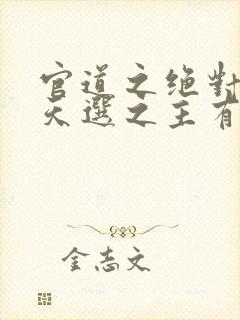 官道之绝對
天選之王有
金志文